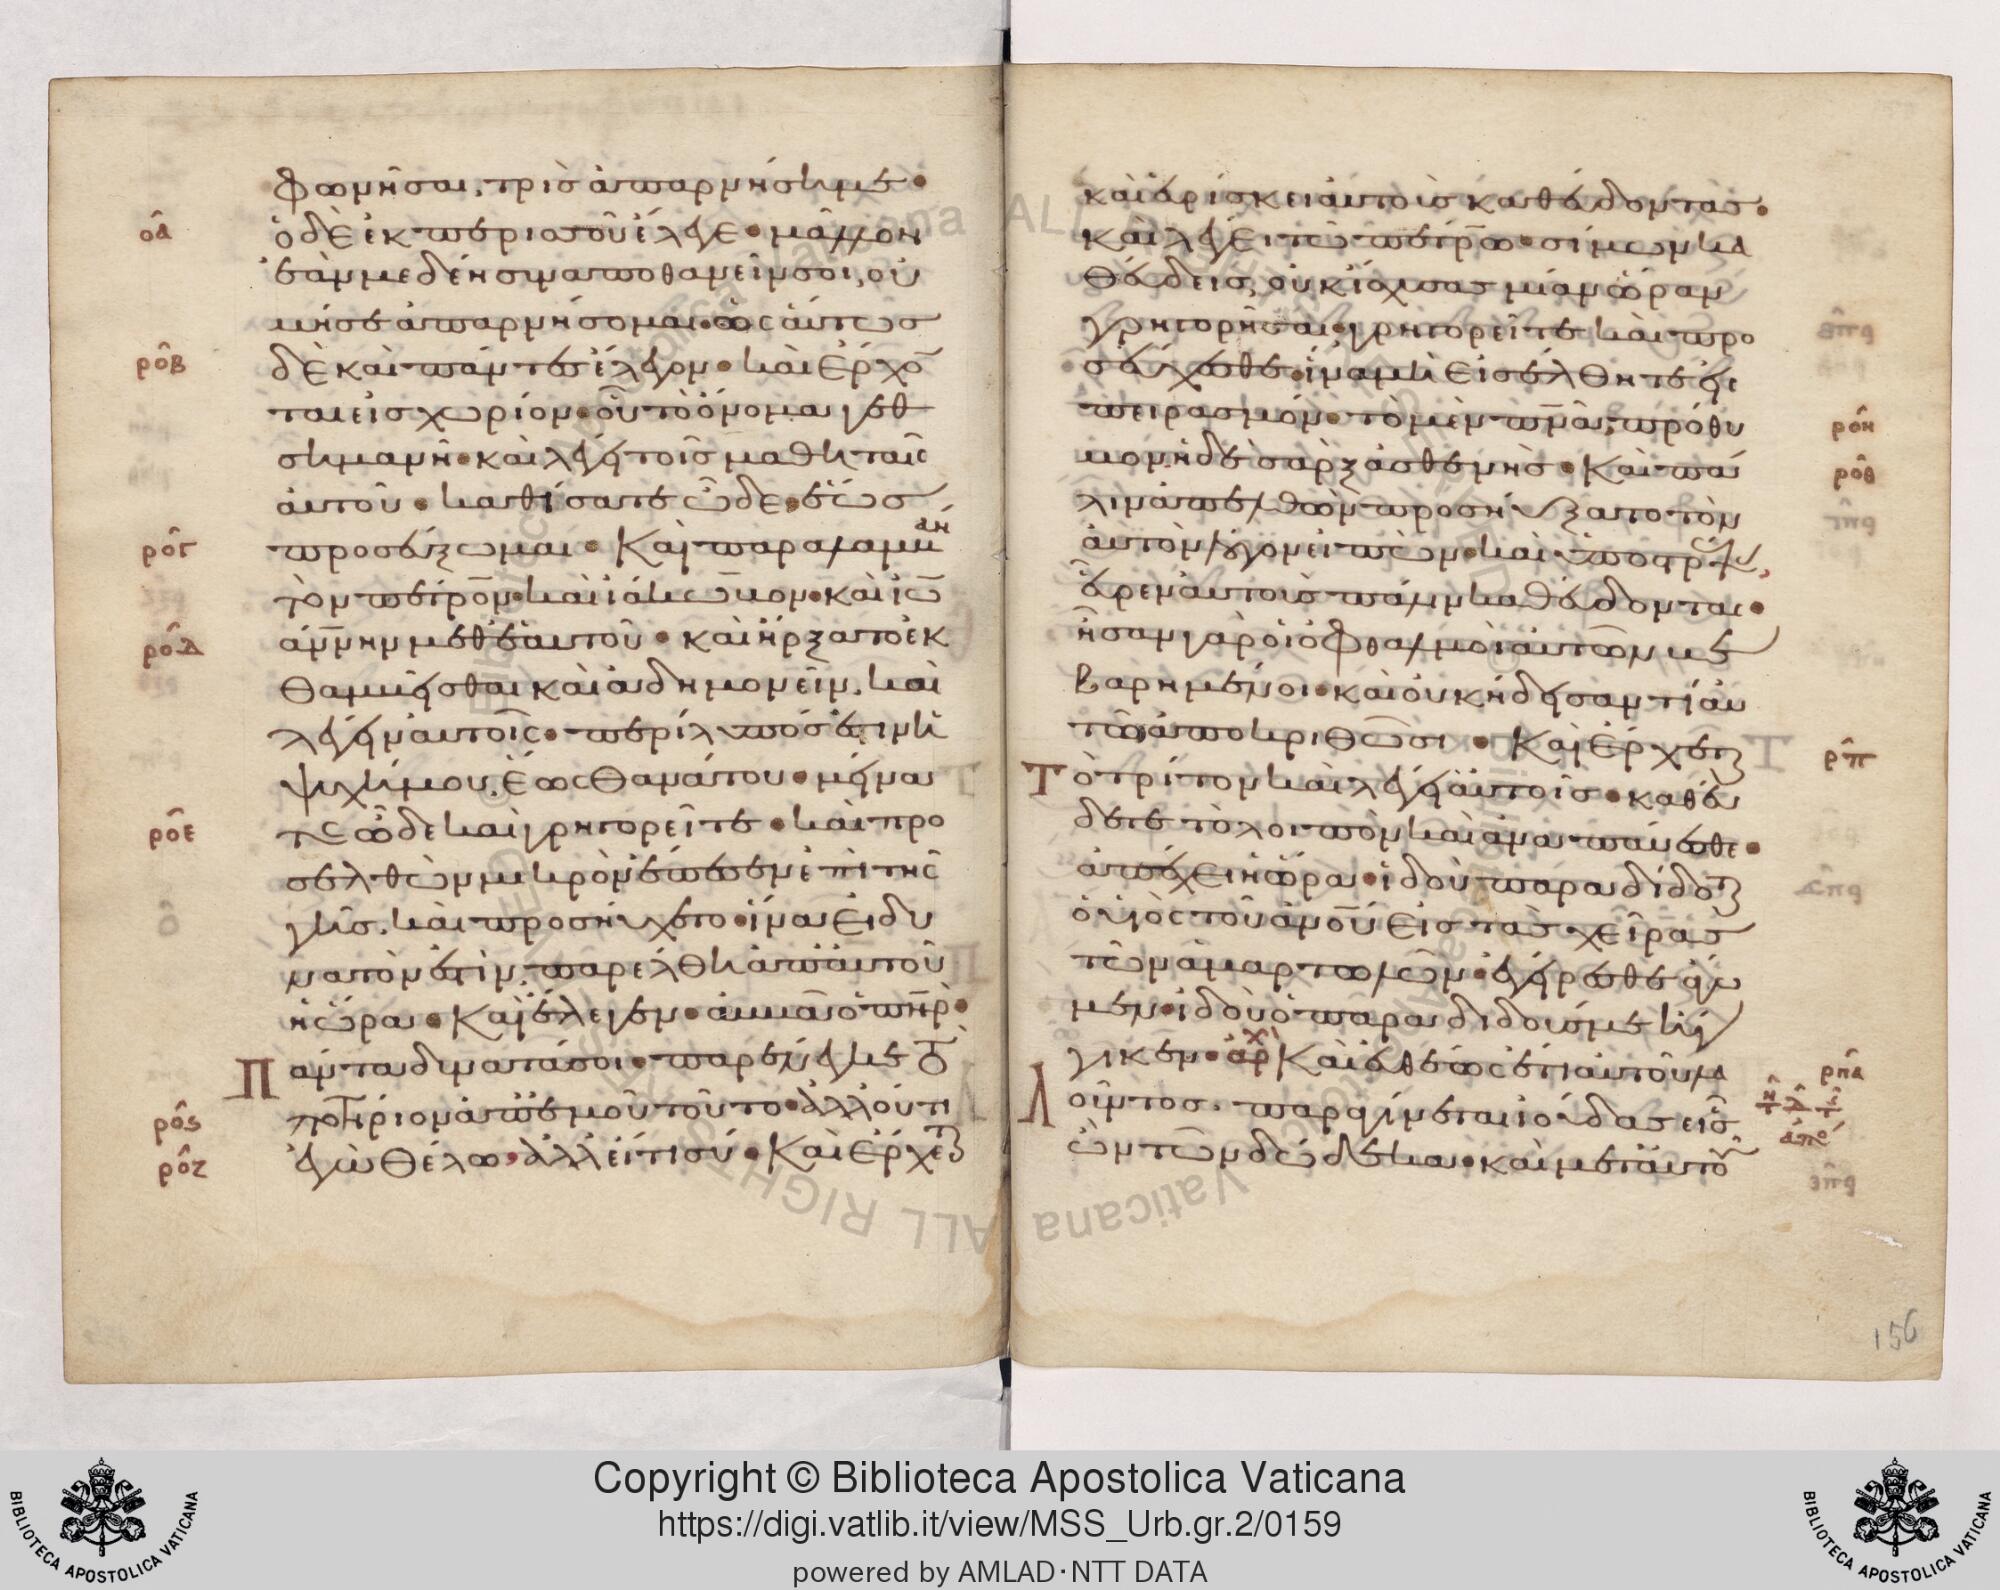 φωνῆσαι, τρὶς ἀπαρνήσῃ με·
οα ὁ δὲ ἐκ περισσοῦ ἔλεγε· μᾶλλον
ἐάν με δέῃ συναποθανεῖν σοι, οὐ
μή σε ἀπαρνήσομαι· ὡσαύτως
ροβ δὲ καὶ πάντες ἔλεγον· καὶ ἔρχο
ται εἰς χωρίον· οὗ τὸ ὄνομα γεθ
σημανῆ· καὶ λέγει τοῖς μαθηταῖς
αὐτοῦ· καθίσατε ὧδε· ἕως
ρογ προσεύξωμαι· Καὶ παραλαμβάνει
τὸν πέτρον· καὶ ἰάκωβον· καὶ ἰω
ροδ άννην μεθ' ἑαυτοῦ· καὶ ἤρξατο ἐκ
θαμβεῖσθαι καὶ ἀδημονεῖν. καὶ
λέγει αὐτοῖς· περίλυπός ἐστιν ἡ
ψυχή μου, ἕως θανάτου· μείνα
ροε τε ὧδε καὶ γρηγορεῖτε· καὶ προ
σελθὼν μικρὸν ἔπεσεν ἐπὶ τῆς
γῆς. καὶ προσηύχετο· ἵνα εἰ δυ
νατόν ἐστιν, παρέλθῃ ἀπ' αὐτοῦ
ἡ ὥρα· Καὶ ἔλεγεν· ἀββᾶ ὁ πηρ·
Πάντα δυνατά σοι· παρένεγκε τὸ
ρος ποτήριον ἀπ' ἐμοῦ τοῦτο· ἀλλ' οὐ τί
ροζ ἐγὼ θέλω, ἀλλ' εἴ τι σύ· Καὶ ἔρχεται
καὶ εὑρίσκει αὐτοὺς καθεύδοντας·
καὶ λέγει τῷ πέτρῳ· σίμων κα
θεύδεις, οὐκ ἴσχυσας μίαν ὥραν
γρηγορῆσαι· γρηγορεῖτε καὶ προ
σεύχεσθε· ἵνα μὴ εἰσέλθητε εἰς
πειρασμόν· τὸ μὲν πνα, πρόθυ ροη
μον, ἡ δὲ σὰρξ ἀσθενής· Καὶ πά ροθ
λιν ἀπελθὼν προσηύξατο τὸν
αὐτὸν λόγον εἰπών· καὶ ὑποστρέψας,
εὗρεν αὐτοὺς πάλιν καθεύδοντας·
ἦσαν γὰρ οἱ ὀφθαλμοὶ αὐτῶν κα
βαρημένοι· καὶ οὐκ ᾔδεισαν τί αὐ
τῷ ἀποκριθῶσι· Καὶ ἔρχεται ρπ
Τὸ τρίτον καὶ λέγει αὐτοῖς· καθεύ
δετε τὸ λοιπὸν καὶ ἀναπαύεσθε·
ἀπέχει ἡ ὥρα· ἰδοὺ παραδίδοται
ὁ υἱὸς τοῦ ἀνου εἰς τὰς χεῖρας
τῶν ἁμαρτωλῶν· ἐγείρεσθε ἄγω
μεν· ἰδοὺ ὁ παραδιδούς με ἤγ
γικεν· αρχ Καὶ εὐθέως ἔτι αὐτοῦ λα ρπα
Λοῦντος. παραγίνεται ἰούδας εἷς
ὢν τῶν δώδεκα· καὶ μετ' αὐτοῦ
156
Copyright © Biblioteca Apostolica Vaticana
https://digi.vatlib.it/view/MSS_Urb.gr.2/0159
powered by AMLAD·NTT DATA
BIBLIOTECA APOSTOLICA VATICANA
BIBLIOTECA APOSTOLICA VATICANA